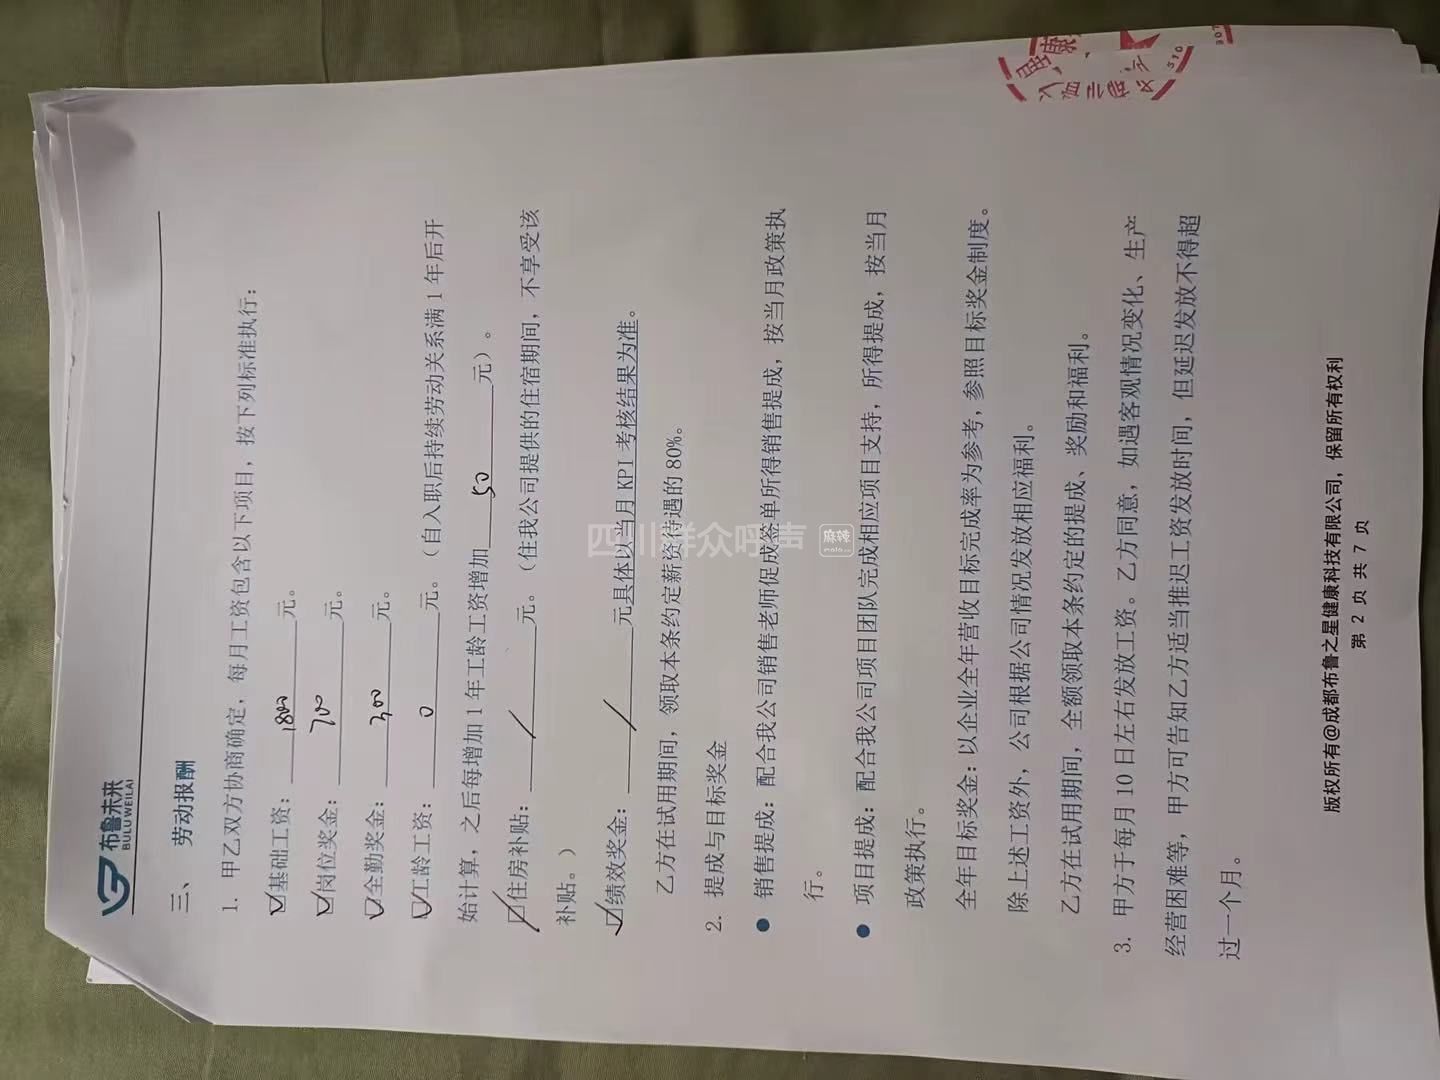 布鲁未来
BULU WEILAI
三、 劳动报酬
1. 甲乙双方协商确定，每月工资包含以下项目，按下列标准执行：
☑基础工资：1800元。
☑岗位奖金：700元。
☑全勤奖金：300元。
☑工龄工资：0元。（自入职后持续劳动关系满1年后开
始计算，之后每增加1年工龄工资增加50元）。
住房补贴：/元。（住我公司提供的住宿期间，不享受该
补贴。）
☑绩效奖金：/元具体以当月KPI考核结果为准。
乙方在试用期间，领取本条约定薪资待遇的80%。
2. 提成与目标奖金
● 销售提成：配合我公司销售老师促成签单所得销售提成，按当月政策执
行。
● 项目提成：配合我公司项目团队完成相应项目支持，所得提成，按当月
政策执行。
全年目标奖金：以企业全年营收目标完成率为参考，参照目标奖金制度。
除上述工资外，公司根据公司情况发放相应福利。
乙方在试用期间，全额领取本条约定的提成、奖励和福利。
3. 甲方于每月10日左右发放工资。乙方同意，如遇客观情况变化、生产
经营困难等，甲方可告知乙方适当推迟工资发放时间，但延迟发放不得超
过一个月。
版权所有@成都布鲁之星健康科技有限公司，保留所有权利
第 2 页 共 7 页
四川群众呼声
麻辣
mala.cn